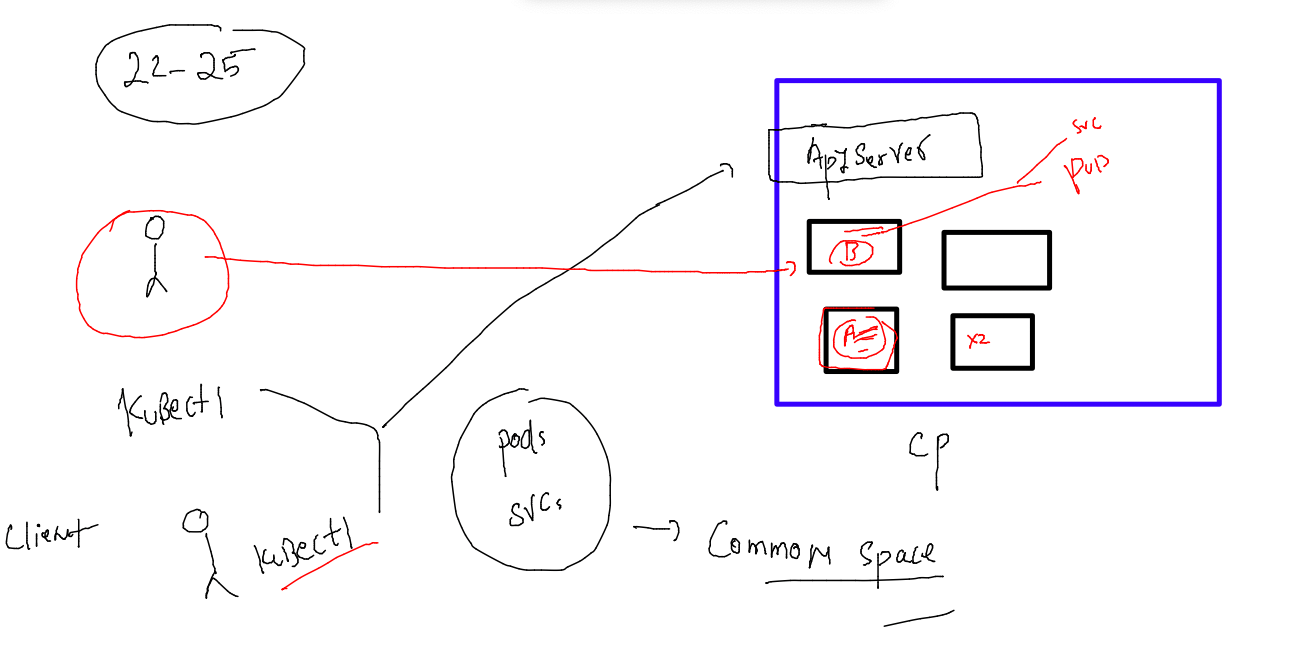 22-25
ApIServer
svc
pod
B
A
x2
KuBectl
pods
svcs
CP
Client
KuBectl
Common space